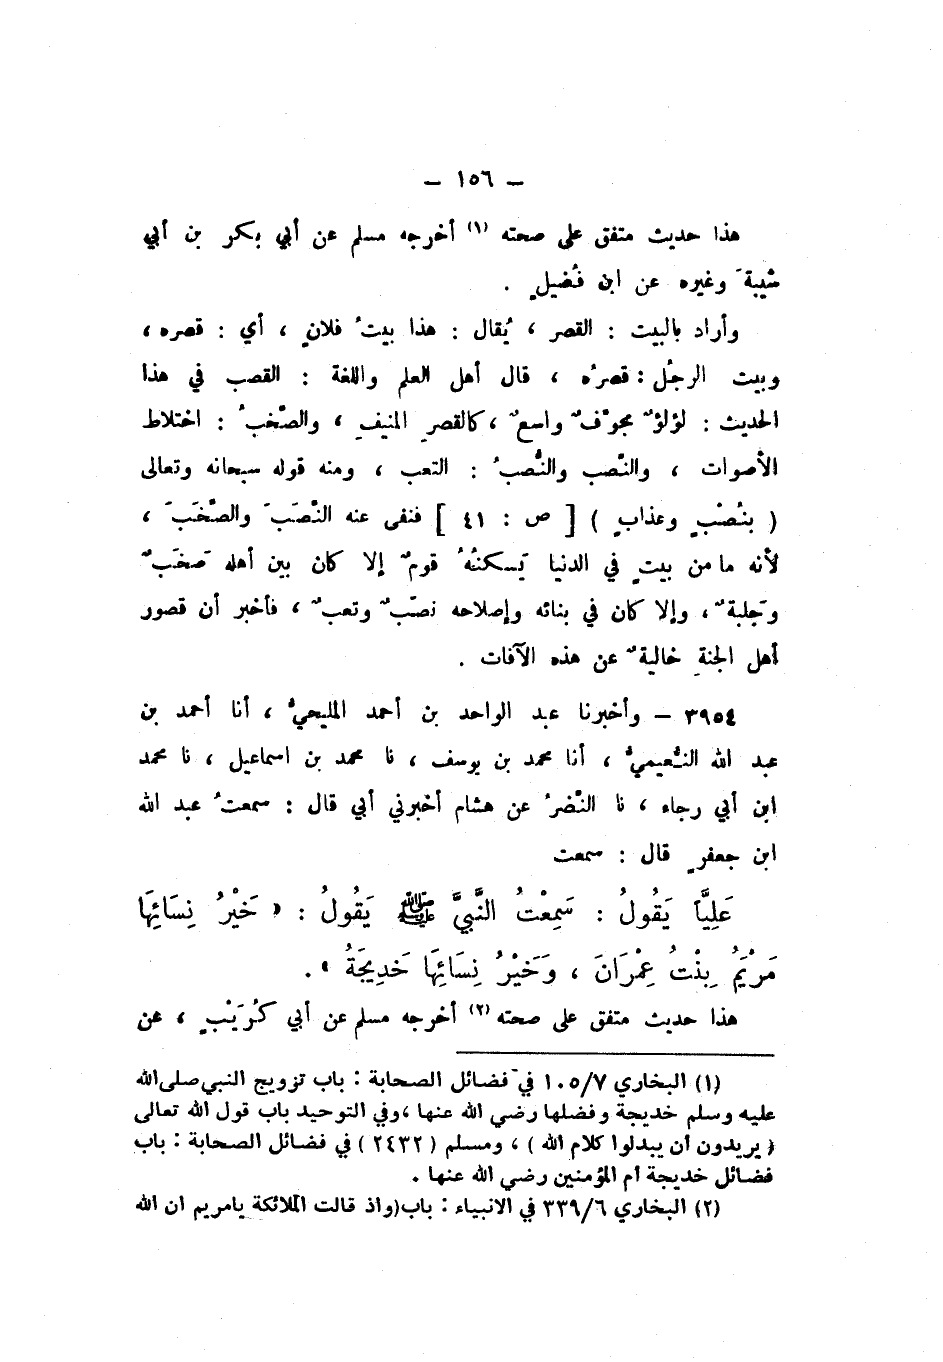 – ١٥٦ –
هذا حديث متفق على صحته (١) أخرجه مسلم عن أبي بكر بن أبي
شيبةَ وغيره عن ابن فُضيلٍ .
وأراد بالبيت : القصر ، يُقال : هذا بيتُ فلانٍ ، أي : قصره ،
وبيت الرجُل : قصرُه ، قال أهل العلم واللغة : القصب في هذا
الحديث : لؤلؤٌ مجوّفٌ واسعٌ ، كالقصرِ المنيفِ ، والصّخبُ : اختلاط
الأصوات ، والنّصب والنُّصبُ : التعب ، ومنه قوله سبحانه وتعالى
( بنُصْبٍ وعذابٍ ) [ ص : ٤١ ] فنفى عنه النّصَبَ والصّخَبَ ،
لأنه ما من بيتٍ في الدنيا يَسكنُهُ قومٌ إلا كان بين أهله صَخَبٌ
وجَلبةٌ ، وإلا كان في بنائه وإصلاحه نصَبٌ وتعبٌ ، فأخبر أن قصور
أهل الجنةِ خاليةٌ عن هذه الآفات .
٣٩٥٤ – وأخبرنا عبد الواحد بن أحمد المليحيُّ ، أنا أحمد بن
عبد الله النُّعيميُّ ، أنا محمد بن يوسف ، نا محمد بن اسماعيل ، نا محمد
ابن أبي رجاء ، نا النّضرُ عن هشام أخبرني أبي قال : سمعتُ عبد الله
ابن جعفرٍ قال : سمعت
عَلِيَّاً يَقُولُ : سَمِعْتُ النَّبِيَّ ﷺ يَقُولُ : « خَيْرُ نِسَائِهَا
مَرْيَمُ بِنْتُ عِمْرَانَ ، وَخَيْرُ نِسَائِهَا خَدِيجَةُ » .
هذا حديث متفق على صحته (٢) أخرجه مسلم عن أبي كُرَيْبٍ ، عن
(١) البخاري ١٠٥/٧ في فضائل الصحابة : باب تزويج النبي صلى الله
عليه وسلم خديجة وفضلها رضي الله عنها ، وفي التوحيد باب قول الله تعالى
( يريدون أن يبدلوا كلام الله ) ، ومسلم ( ٢٤٣٢ ) في فضائل الصحابة : باب
فضائل خديجة أم المؤمنين رضي الله عنها .
(٢) البخاري ٣٣٩/٦ في الانبياء : باب (واذ قالت الملائكة يامريم ان الله